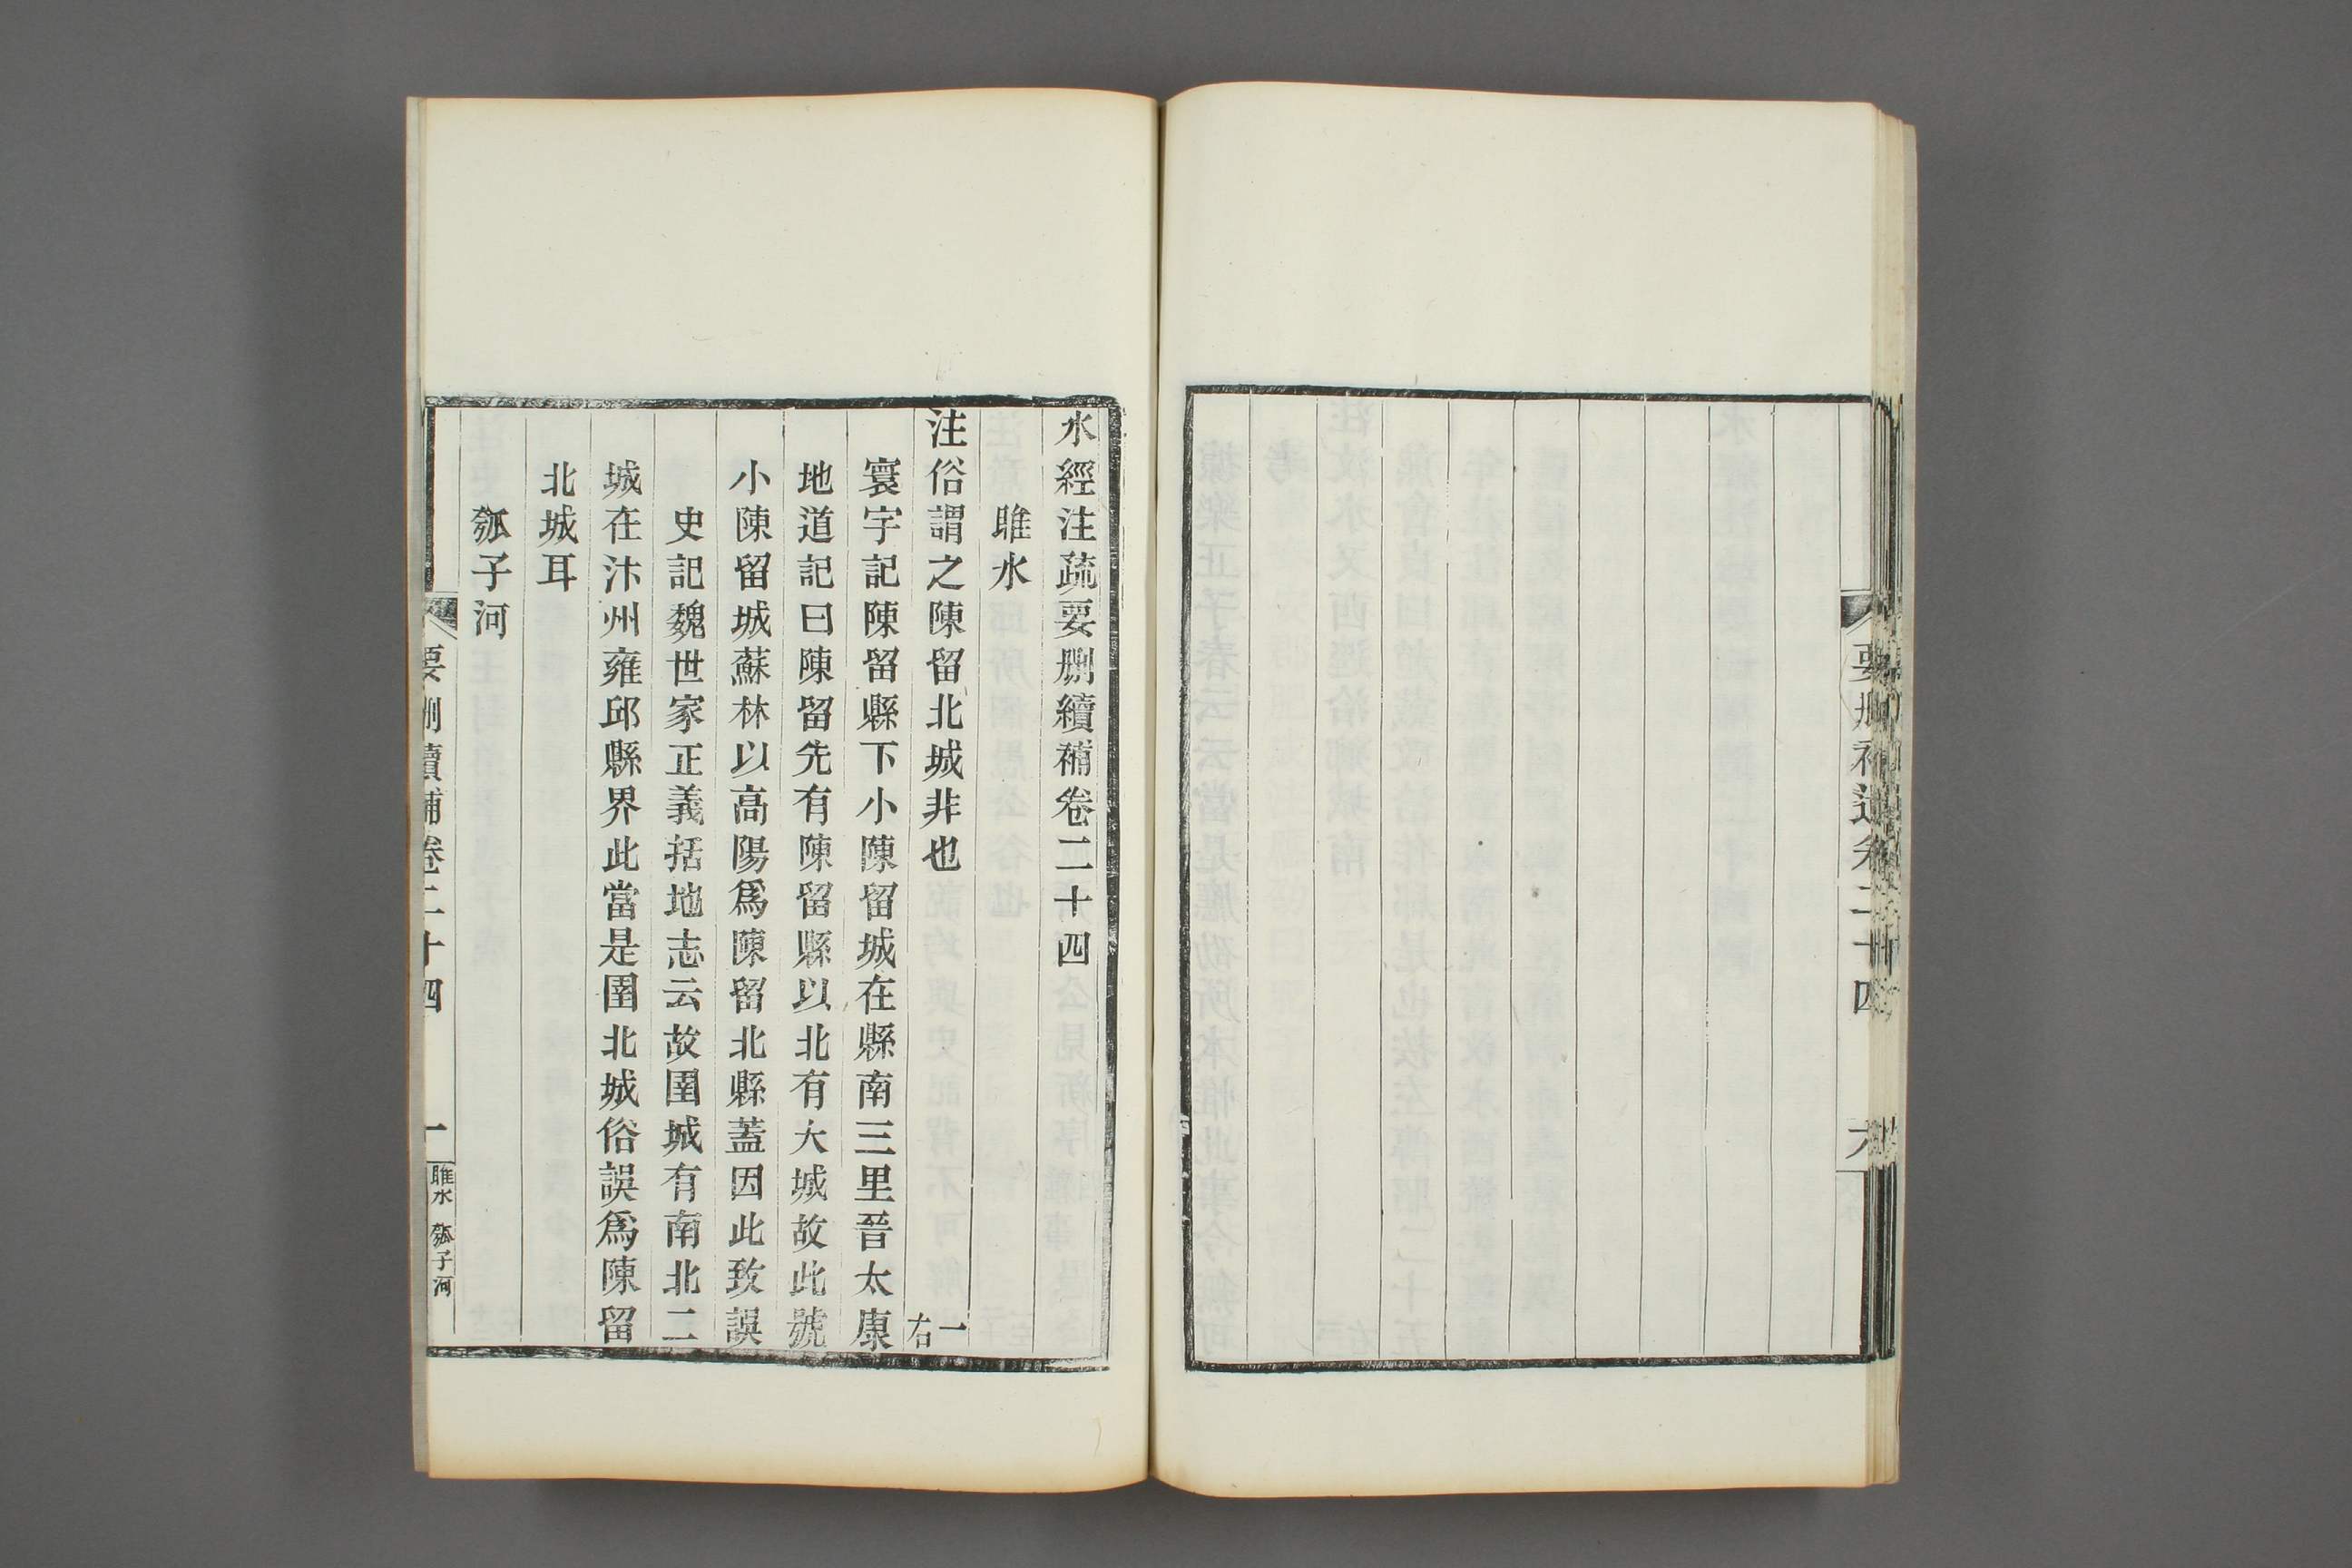 要刪補遺卷二十四
六
水經注疏要刪續補卷二十四
睢水
注俗謂之陳留北城非也 一右
寰宇記陳留縣下小陳留城在縣南三里晉太康
地道記曰陳留先有陳留縣以北有大城故此號
小陳留城蘇林以高陽爲陳留北縣蓋因此致誤
史記魏世家正義括地志云故圉城有南北二
城在汴州雍邱縣界此當是圉北城俗誤爲陳留
北城耳
瓠子河
要刪續補卷二十四
一
睢水 瓠子河